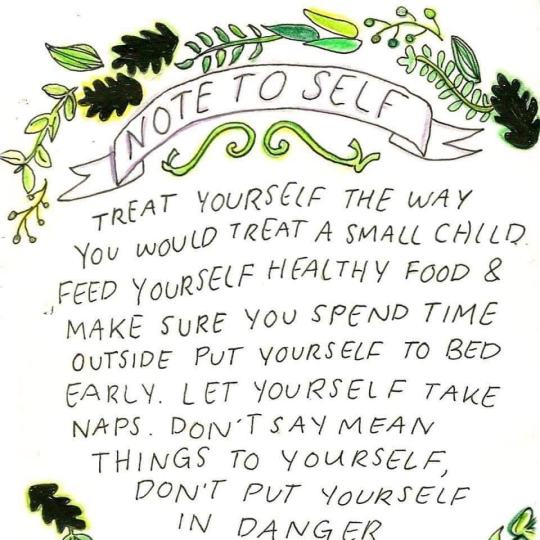 NOTE TO SELF
TREAT YOURSELF THE WAY
YOU WOULD TREAT A SMALL CHILD.
FEED YOURSELF HEALTHY FOOD &
MAKE SURE YOU SPEND TIME
OUTSIDE PUT YOURSELF TO BED
EARLY. LET YOURSELF TAKE
NAPS. DON'T SAY MEAN
THINGS TO YOURSELF,
DON'T PUT YOURSELF
IN DANGER